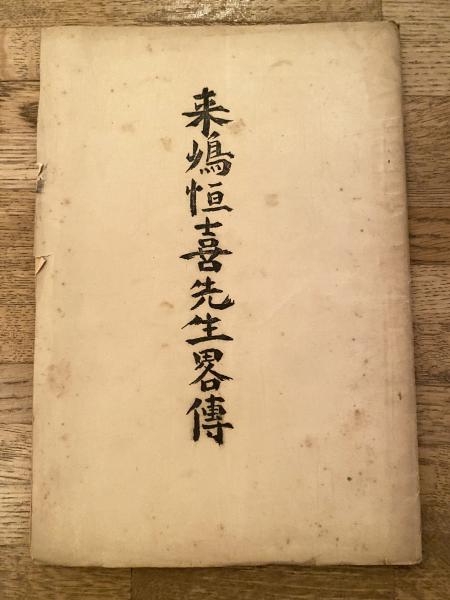 来嶋恒喜先生畧傳